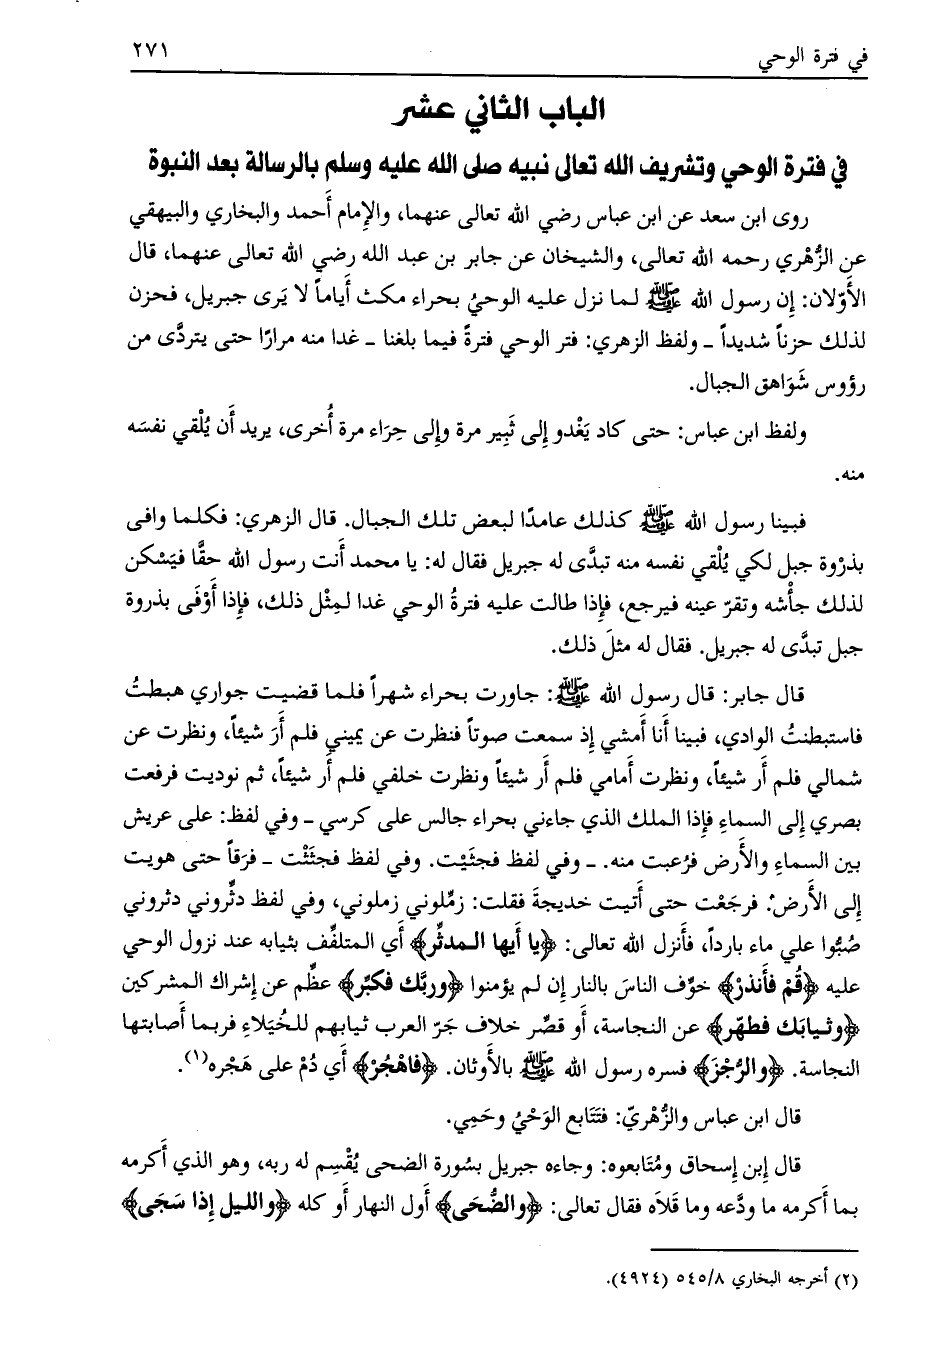 في فترة الوحي ٢٧١
الباب الثاني عشر
في فترة الوحي وتشريف الله تعالى نبيه صلى الله عليه وسلم بالرسالة بعد النبوة
روى ابن سعد عن ابن عباس رضي الله تعالى عنهما، والإمام أَحمد والبخاري والبيهقي
عن الزُّهْري رحمه الله تعالى، والشيخان عن جابر بن عبد الله رضي الله تعالى عنهما، قال
الأَوّلان: إن رسول الله ﷺ لما نزل عليه الوحيُ بحراء مكث أَياماً لا يَرى جبريل، فحزن
لذلك حزناً شديداً ـ ولفظ الزهري: فتر الوحي فترةً فيما بلغنا ـ غدا منه مرارًا حتى يتردَّى من
رؤوس شَوَاهق الجبال.
ولفظ ابن عباس: حتى كاد يَغْدو إلى ثَبِير مرة وإلى حِرَاء مرة أُخرى، يريد أَن يُلْقي نفسَه
منه.
فبينا رسول الله ﷺ كذلك عامدًا لبعض تلك الجبال. قال الزهري: فكلما وافى
بذرْوة جبل لكي يُلْقي نفسه منه تبدَّى له جبريل فقال له: يا محمد أَنت رسول الله حقًّا فيَسْكن
لذلك جأْشه وتقرّ عينه فيرجع، فإذا طالت عليه فترةُ الوحي غدا لمِثْل ذلك، فإذا أَوْفَى بذروة
جبل تبدَّى له جبريل. فقال له مثلَ ذلك.
قال جابر: قال رسول الله ﷺ: جاورت بحراء شهراً فلما قضيت جواري هبطتُ
فاستبطنتُ الوادي، فبينا أَنا أَمشي إذ سمعت صوتاً فنظرت عن يميني فلم أَرَ شيئاً، ونظرت عن
شمالي فلم أَر شيئاً، ونظرت أَمامي فلم أَر شيئاً ونظرت خلفي فلم أَر شيئاً، ثم نوديت فرفعت
بصري إلى السماءِ فإذا الملك الذي جاءني بحراء جالس على كرسي ـ وفي لفظ: على عريش
بين السماء والأَرض فرُعبت منه. ـ وفي لفظ فجثَيْت. وفي لفظ فجثَثْت ـ فرَقاً حتى هويت
إلى الأَرض. فرجَعْت حتى أَتيت خديجةَ فقلت: زمِّلوني زملوني، وفي لفظ دثِّروني دثروني
صُبُّوا علي ماء بارداً، فأَنزل الله تعالى: ﴿يا أَيها المدثّر﴾ أَي المتلفِّف بثيابه عند نزول الوحي
عليه ﴿قُمْ فأَنذرْ﴾ خوِّف الناسَ بالنار إن لم يؤمنوا ﴿وربَّك فكبّر﴾ عظِّم عن إشراك المشركين
﴿وثيابك فطهّر﴾ عن النجاسة، أَو قصِّر خلاف جَرّ العرب ثيابهم للخُيَلاءِ فربما أَصابتها
النجاسة. ﴿والرُّجْزَ﴾ فسره رسول الله ﷺ بالأَوثان. ﴿فاهْجُرْ﴾ أَي دُمْ على هَجْره(١).
قال ابن عباس والزُّهْريّ: فتَتَابع الوَحْيُ وحَمِي.
قال إبن إسحاق ومُتَابعوه: وجاءه جبريل بسُورة الضحى يُقْسِم له ربه، وهو الذي أَكرمه
بما أَكرمه ما ودَّعه وما قَلاَه فقال تعالى: ﴿والضُّحَى﴾ أَول النهار أَو كله ﴿والليل إذا سَجَى﴾
(٢) أخرجه البخاري ٥٤٥/٨ (٤٩٢٤).